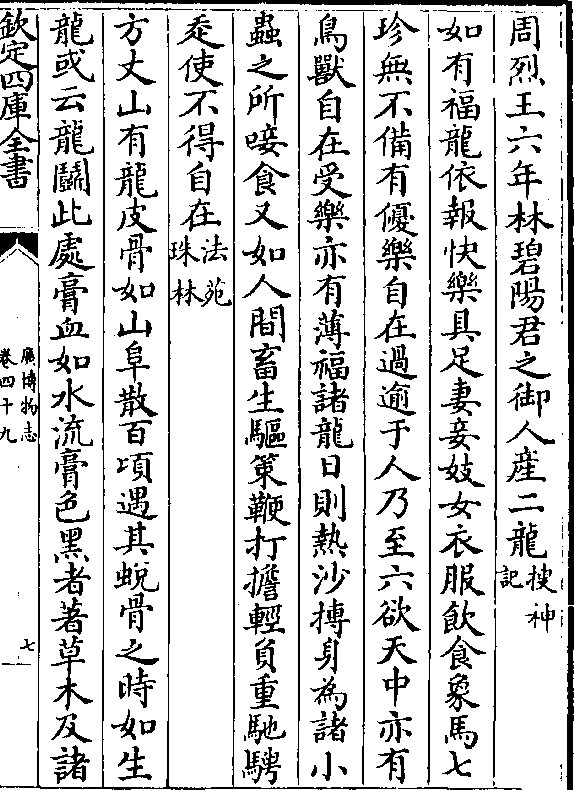 周烈王六年林碧陽君之御人産二龍搜神記
如有福龍依報快樂具足妻妾妓女衣服飲食象馬七
珍無不備有優樂自在過逾于人乃至六欲天中亦有
鳥獸自在受樂亦有薄福諸龍日則熱沙摶身為諸小
蟲之所唼食又如人間畜生驅策鞭打擔輕負重馳騁
走使不得自在法苑珠林
方丈山有龍皮骨如山阜散百項遇其蛻骨之時如生
龍或云龍鬭此處膏血如水流膏色黑者著草木及諸
欽定四庫全書
廣博物志
卷四十九
七